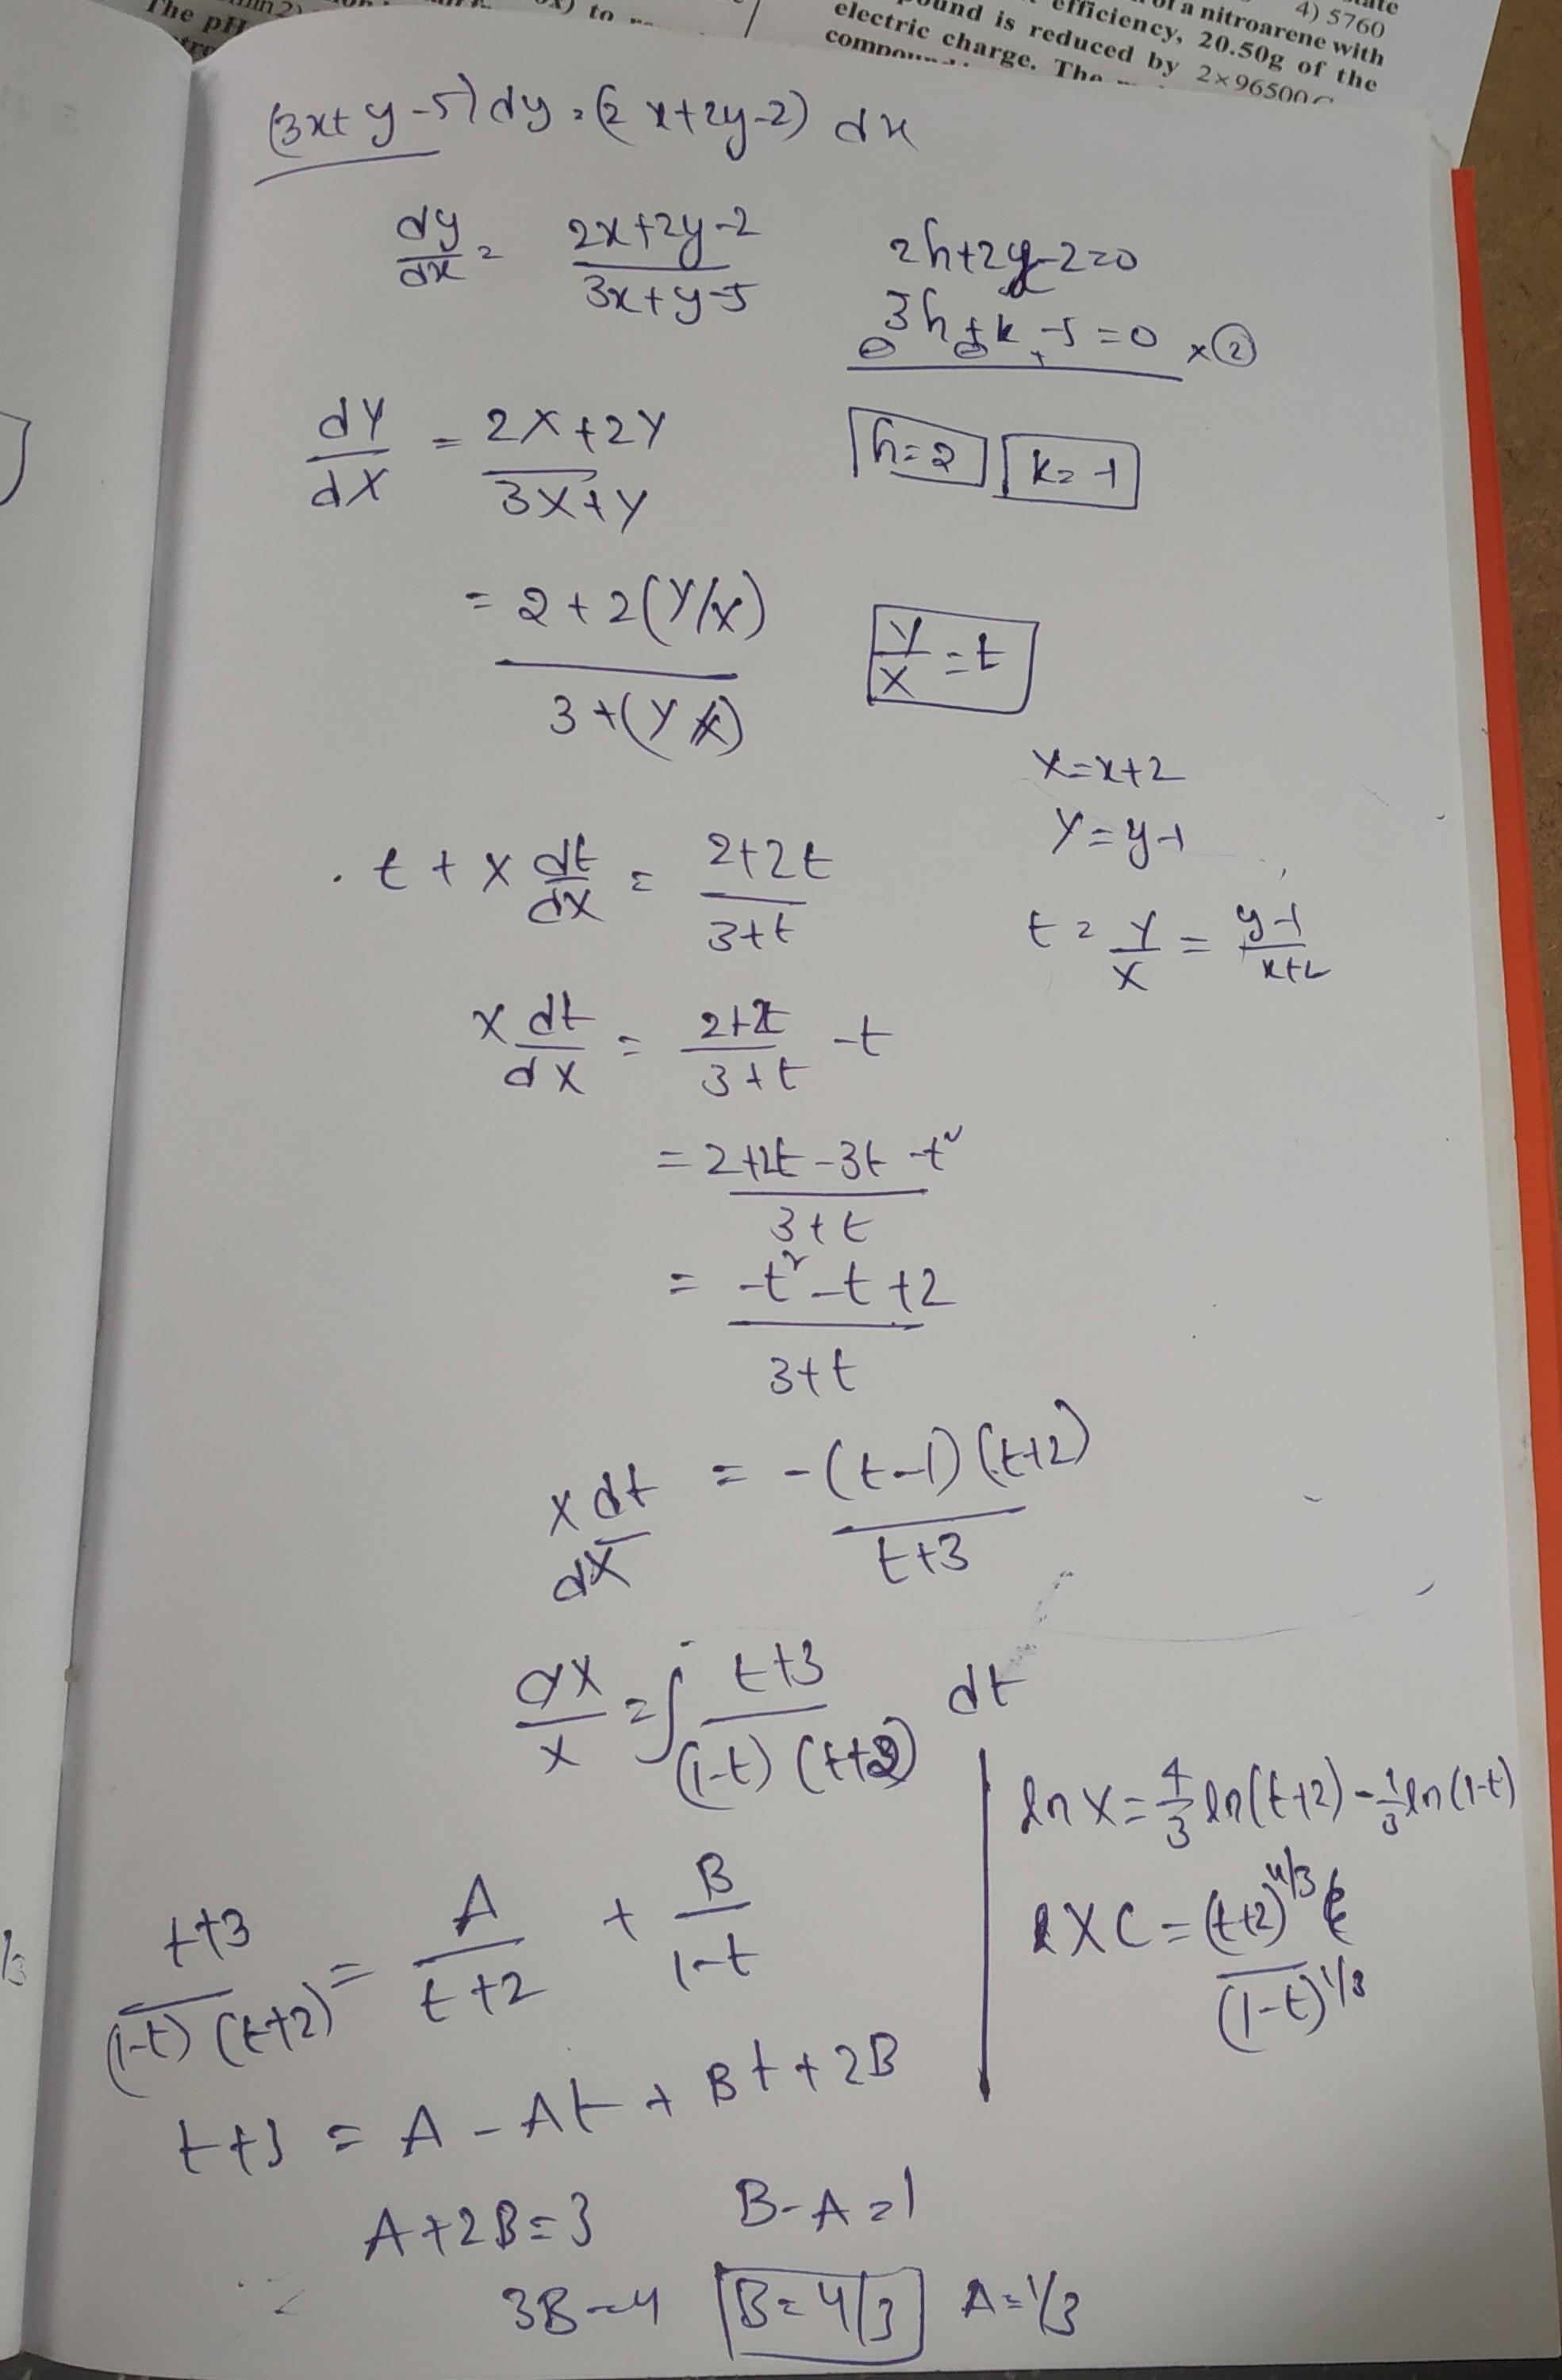 4) 5760
of a nitroarene with
efficiency, 20.50g of the
is reduced by 2×96500
electric charge. The
The pH
to
(3x+y-5)dy=(2x+2y-2) dx
dy/dx = (2x+2y-2)/(3x+y-5)
2h+2y-2=0
3h+k-5=0 ×②
dY/dX = (2X+2Y)/(3X+Y)
h=2 k=-1
= (2+2(Y/X))/(3+(Y/X))
Y/X=t
X=x+2
Y=y-1
t+X dt/dX = (2+2t)/(3+t)
t=Y/X=(y-1)/(x+2)
X dt/dX = (2+2t)/(3+t) -t
= (2+2t-3t-t²)/(3+t)
= (-t²-t+2)/(3+t)
X dt/dX = -(t-1)(t+2)/(t+3)
dX/X = ∫ (t+3)/((1-t)(t+2)) dt
ln X = 4/3 ln(t+2) - 1/3 ln(1-t)
XC = (t+2)^4/3 / (1-t)^1/3
(t+3)/((1-t)(t+2)) = A/(t+2) + B/(1-t)
t+3 = A-At+Bt+2B
A+2B=3 B-A=1
3B=4 B=4/3 A=1/3